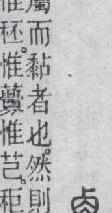 卤
屬而黏者也。然則
惟秠。惟虋惟芑。秬